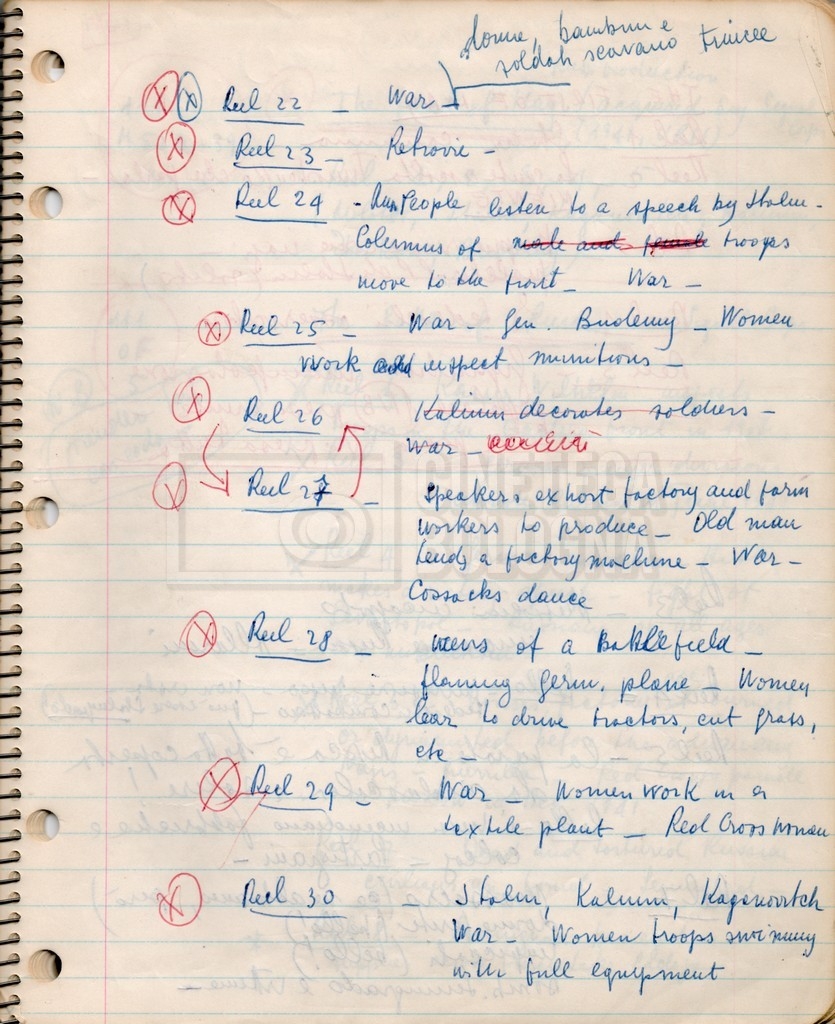 donne, bambini e
soldati scavano trincee
Reel 22 - War -
Reel 23 - Retrovie -
Reel 24 - People listen to a speech by Stalin -
Colermus of male and female troops
move to the front - War -
Reel 25 - War - Gen. Budemy - Women
work and inspect munitions -
Reel 26 Kalinin decorates soldiers -
War -
CINETECA
Reel 27 - Speakers exhort factory and farm
workers to produce - Old man
BOLOGNA
tends a factory machine - War -
Cossacks dance
Reel 28 - views of a Battlefield -
flaming germ. plane - Women
lear to drive tractors, cut grass,
etc -
Reel 29 - War - Women work in a
textile plant - Red Cross Woman
Reel 30 - Stalin, Kalinin, Kaganovitch
War - Women troops swimming
with full equipment